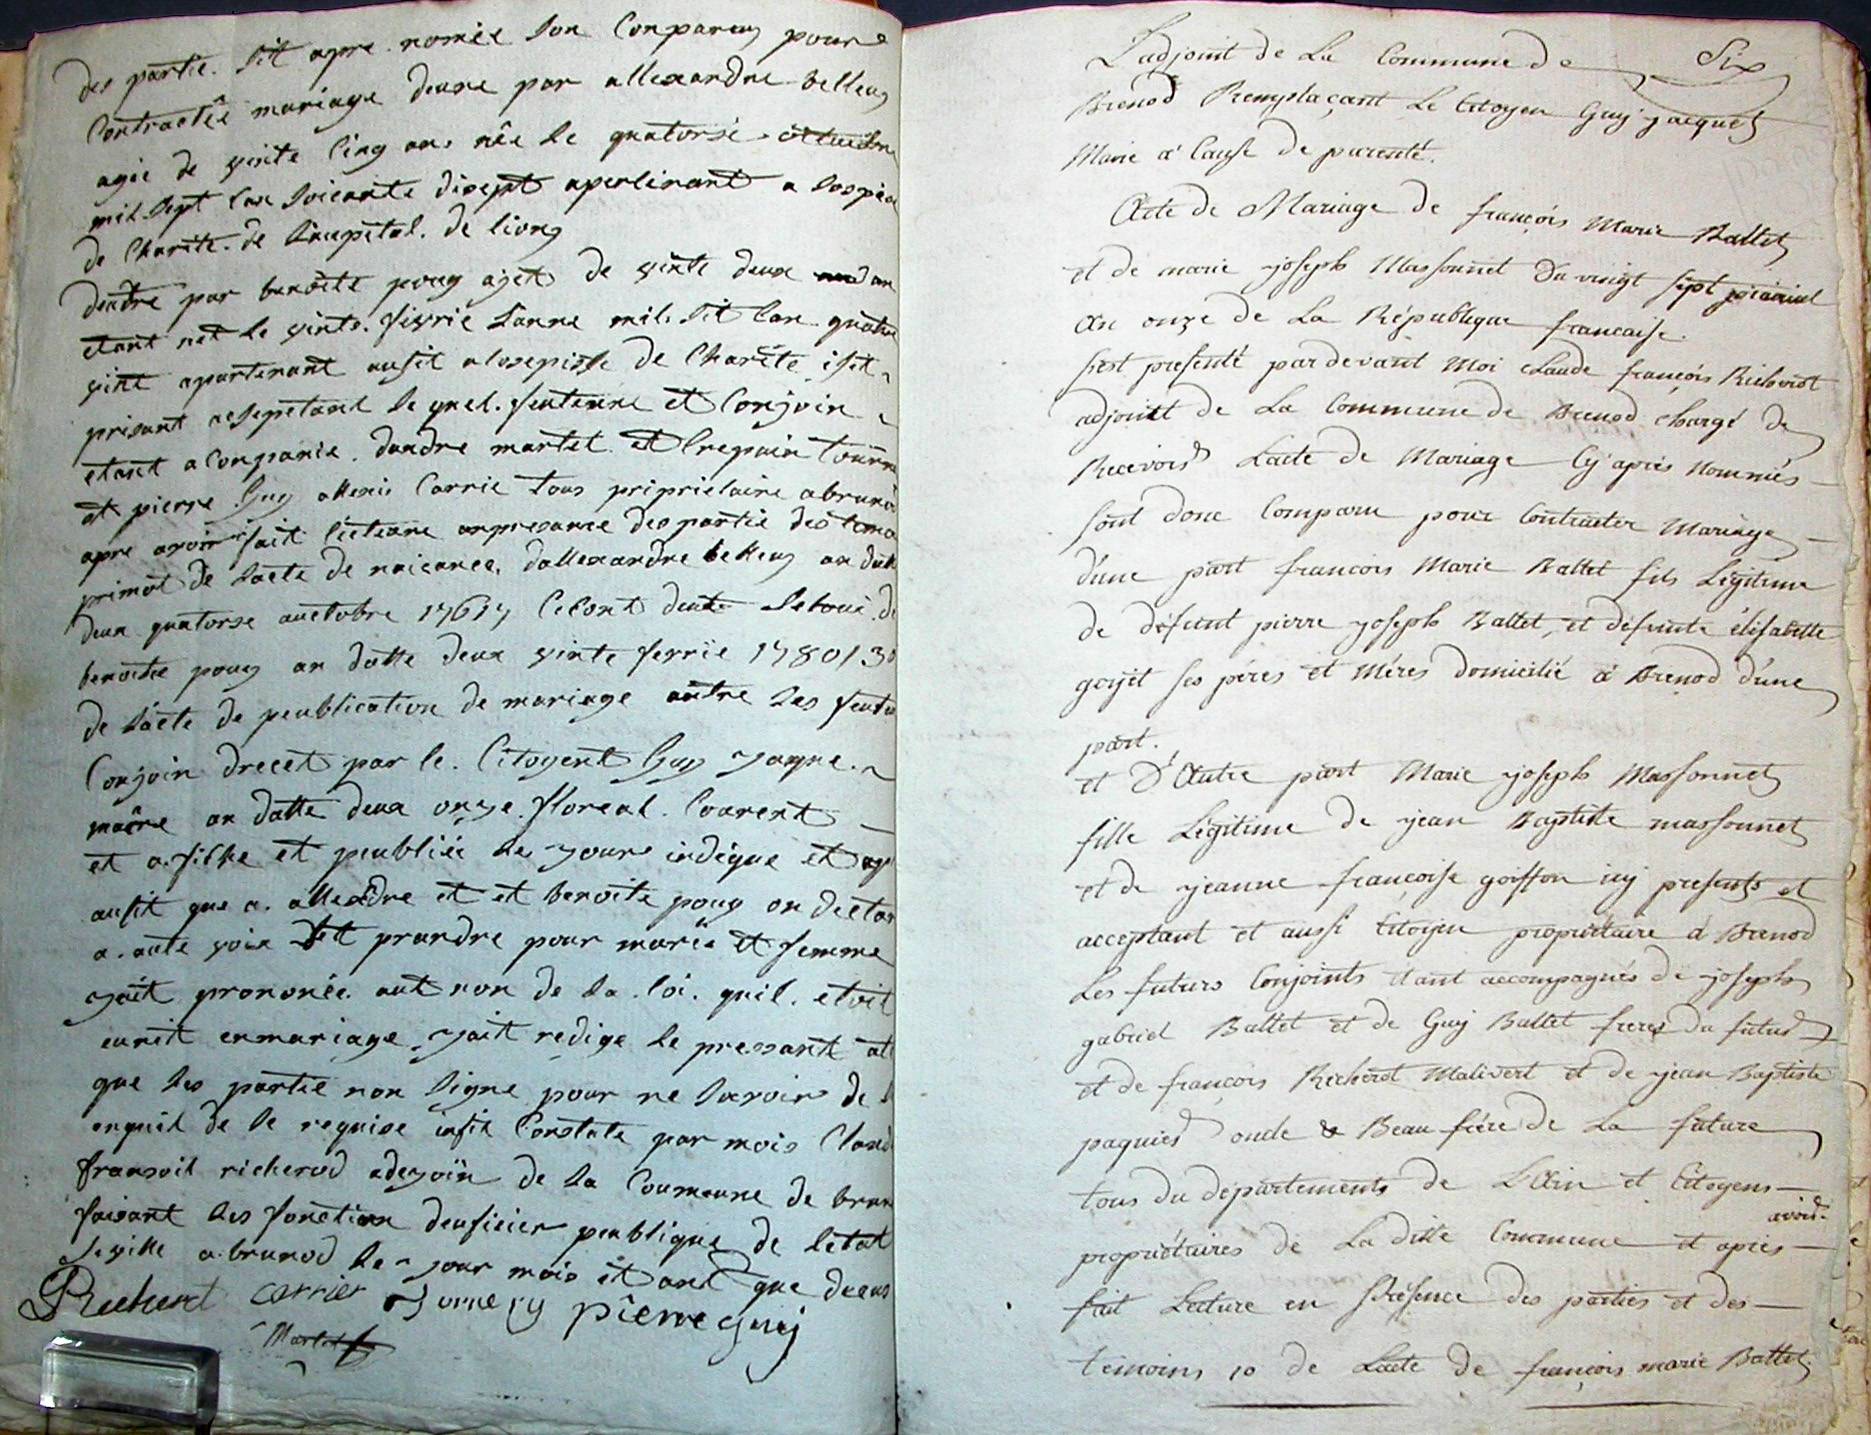 des partie. sit apre nomée son Comparus pour
Contractés mariage deune par allexandre belleus
agie de vinte Cinq ans née le quatorse
mil sept Can soicante disept apertinant a
de Charite. de Laupetal. de lions
deutre par benoite pouy aget de vinte deux an
etant net le vinte. fivrie Lanne mil. sit Can quatre
vint apartenant ausit alosepisse de Charite isit
prisant acsepetant le quel. feuteure et Conjoin
etant a Conpanie. dandre martet et Crepain tourn
et pierre Guy allexis Carrie tous pripriétaire abruno
apre avoir fait lecteure anpresance des partie des temo
primot de lacte de naicance, dallexandre belleus an datte
deux quatorse auctobre 17617 deute
benoitre pouy an datte deux vinte fevrie 1780/30
de lacte de peublication de mariage antre les feutu
Conjoin drecet par le. Citoyent Guy Jaque
maire an datte deux onze. floreal. Courent
et a. fiske et peubliée les joure indeque et apr
ausit que a. allexdre et et benoite pouy on declar
a. aute voix set prandre pour marie et femme
jait prononée. aut non de la. loi. quil. etoit
eunit enmariage. jait redige le pressant at
que les partie non signe pour ne savoir de
enquit de le requise insit Constate par mois Claud
fransoit richerod adejoin de la Coumeune de brun
faisant les fonction deuficier peublique de letat
seville a. brunod le jour mois et ant que decus
Richerot carrier Jornery pierre guy
Martet
L'adjoint de La Commune de Six
Brenod Remplaçant Le Citoyen Guy jacquet
Marie a Cause de parenté.
Acte de Mariage de françois Marie Ballet
et de marie joseph Massonnet Du vingt sept prairial
An onze de La République francaise.
s'est presenté pardevant Moi Claude françois Richerot
adjointt de La Commune de Brenod chargé de
Recevoir L'acte de Mariage Cy après Nommés
sont donc Comparu pour Contracter Mariage
d'une part francois Marie Ballet fils Légitime
de défunt pierre joseph Ballet, et défunte élisabette
goyet ses péres et Méres domicilié a Brenod d'une
part.
et D'Autre part Marie joseph Massonnet
fille Légitime de jean Baptiste massonnet
et de jeanne françoise goiffon icy presents et
acceptant et aussi Citoyen propriétaire à Brenod
Les futurs Conjoints étant accompagnés de joseph
gabriel Ballet et de Guy Ballet freres du futur
et de françois Richerot Malivert et de jean Baptiste
paquier oncle & Beau frére de La future
tous du départements de L'Ain et Citoyens
avoir
propriétaires de La ditte Commune et après
fait Lecture en Présence des parties et des
témoins 10 de L'acte de françois marie Ballet